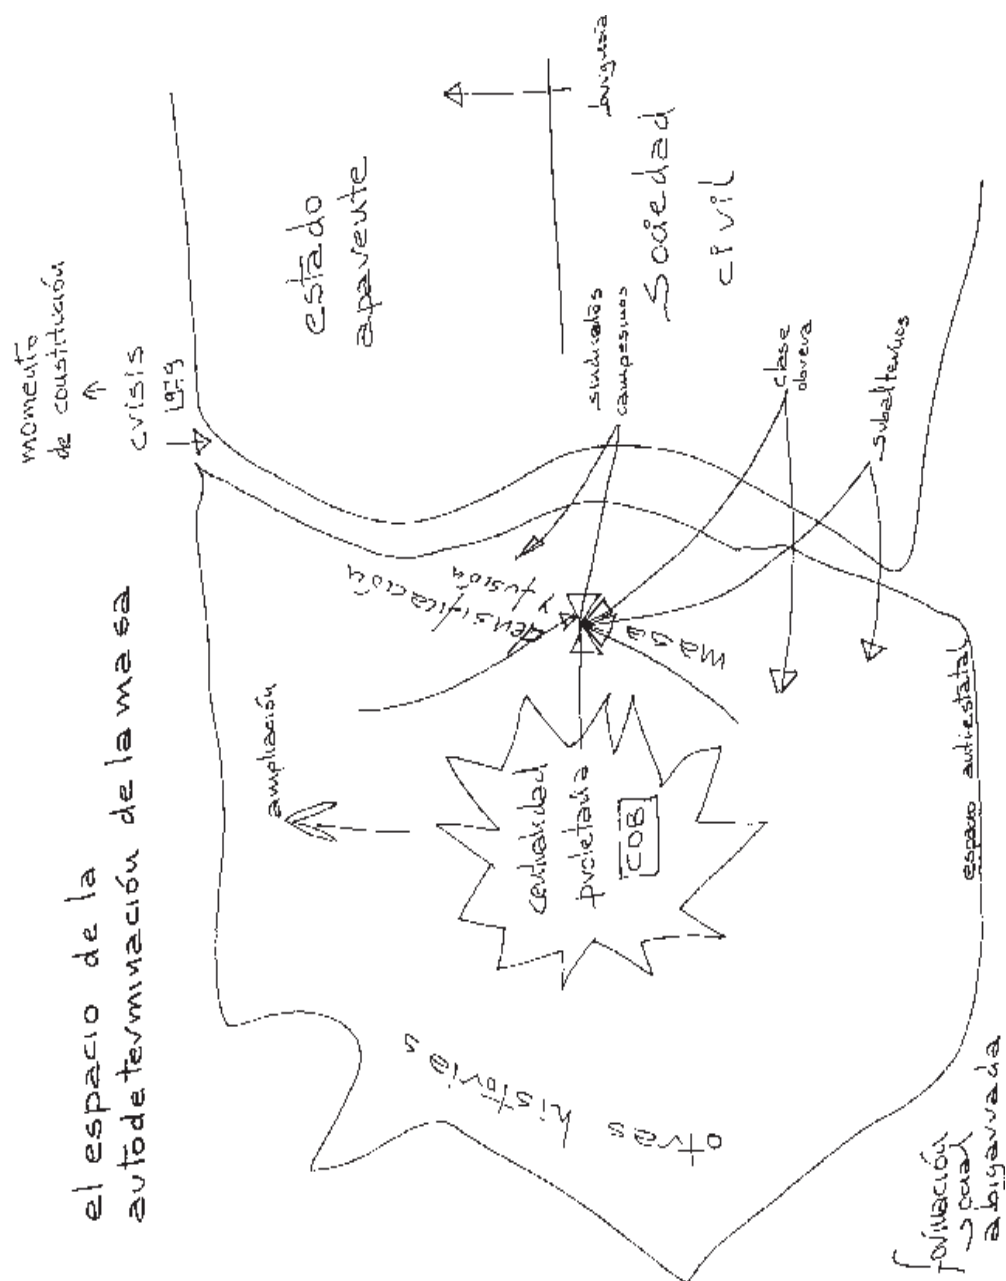 el espacio de la
autodeterminación de la masa
momento
de constitución
crisis
1979
estado
aparente
burguesía
sociedad
civil
sindicatos
campesinos
clase
obrera
subalternos
ampliación
densificación
y fusión
masa
centralidad
proletaria
COB
espacio antiestatal
otras historias
formación
social
abigarrada